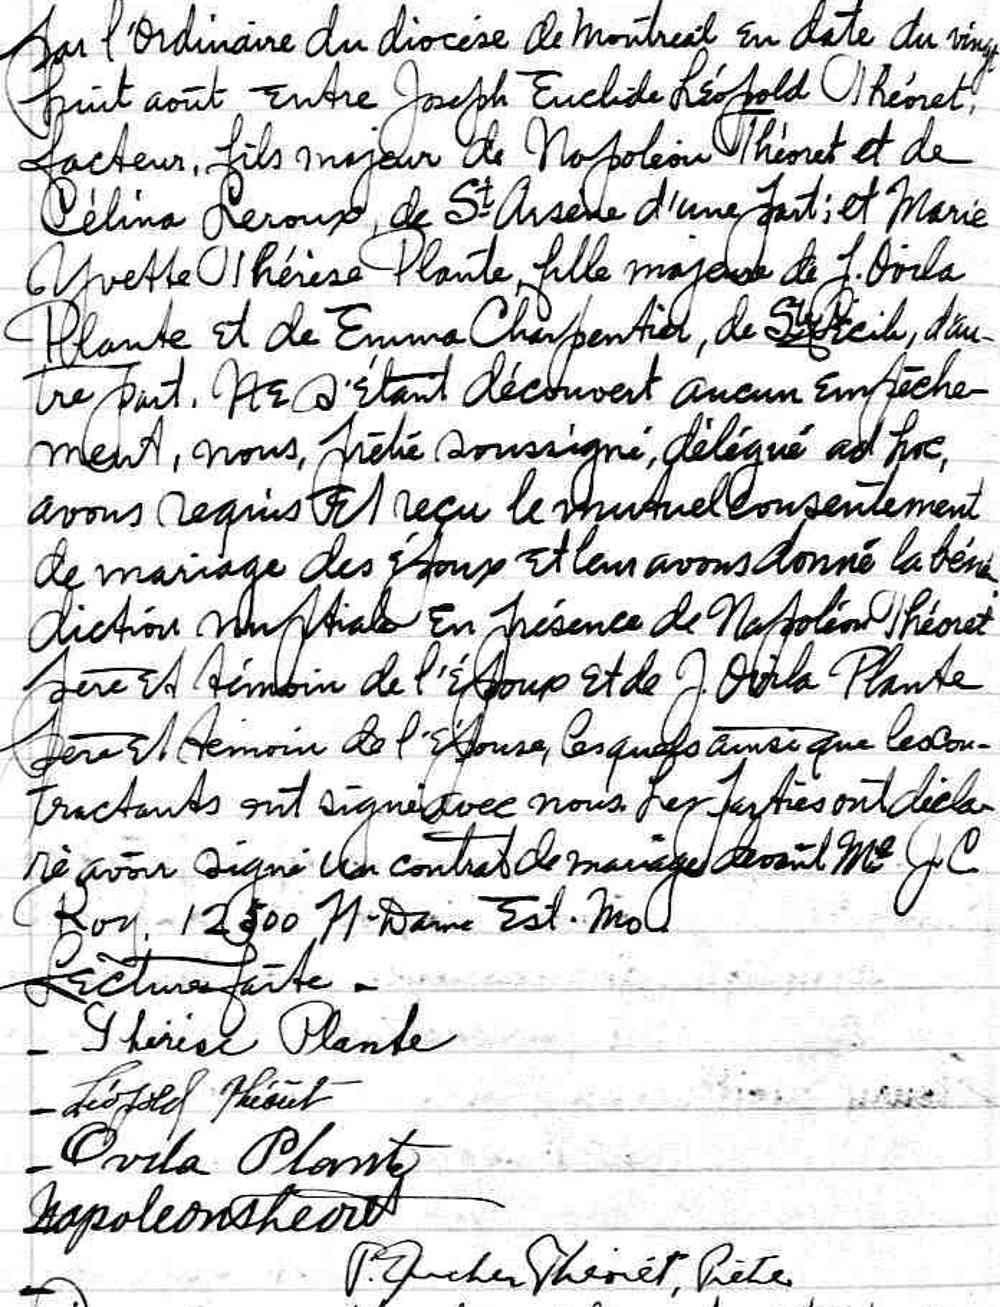 par l'Ordinaire du diocèse de Montréal en date du vingt
huit août entre Joseph Euclide Léopold Théoret,
facteur, fils majeur de Napoléon Théoret et de
Célina Leroux, de St Arsène d'une part; et Marie
Yvette Thérèse Plante, fille majeure de J. Ovila
Plante et de Emma Charpentier, de Ste Cécile, d'au-
tre part. Ne s'étant découvert aucun empêche-
ment, nous, prêtre soussigné, délégué ad hoc,
avons requis et reçu le mutuel consentement
de mariage des époux et leur avons donné la béné
diction nuptiale en présence de Napoléon Théoret
père et témoin de l'époux et de J. Ovila Plante
père et témoin de l'épouse, lesquels ainsi que les con-
tractants ont signé avec nous. Les parties ont décla-
ré avoir signé un contrat de mariage devant Me J. C.
Roy, 12500 N-Dame Est. Mo.
Lecture faite -
- Thérèse Plante
- Léopold Théoret
- Ovila Plante
Napoleon Theoret
P. Théorêt, Prêtre